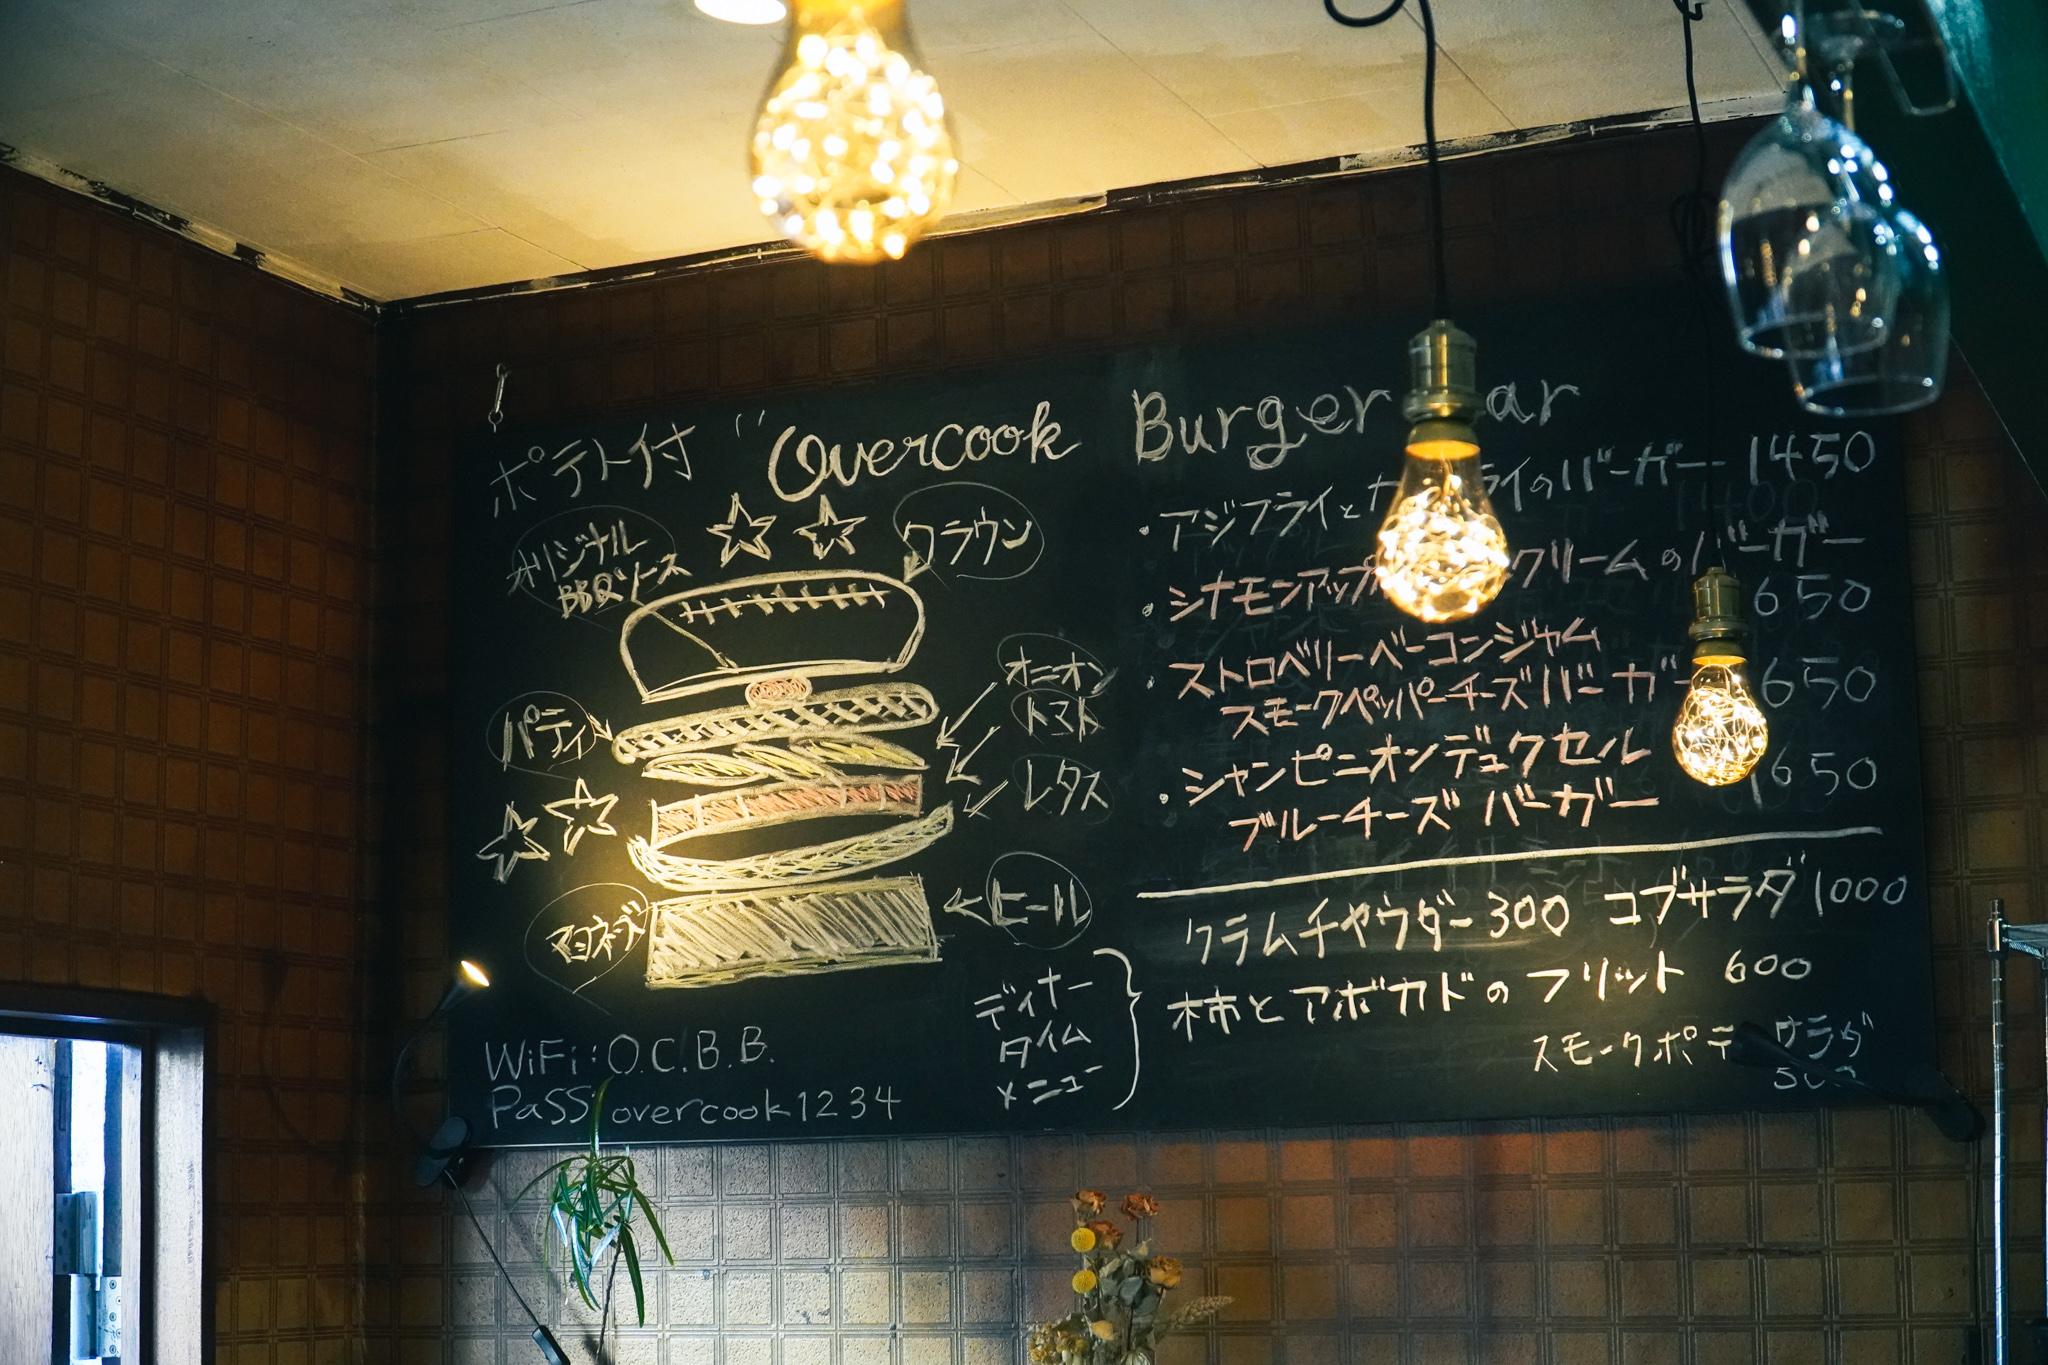 ポテト付 "Overcook Burger ar
オリジナル
BBQソース
クラウン
パティ
オニオン
トマト
レタス
マヨネーズ
ヒール
・アジフライと ライのバーガー 1450
・シナモンアップ クリームのバーガー
650
・ストロベリーベーコンジャム
スモークペッパーチーズバーガー 1650
・シャンピニオンデュクセル
ブルーチーズバーガー 1650
クラムチャウダー 300 コブサラダ 1000
ディナー
タイム
メニュー
柿とアボカドのフリット 600
スモークポテ サラダ
WiFi:O.C.B.B.
PaSS overcook1234